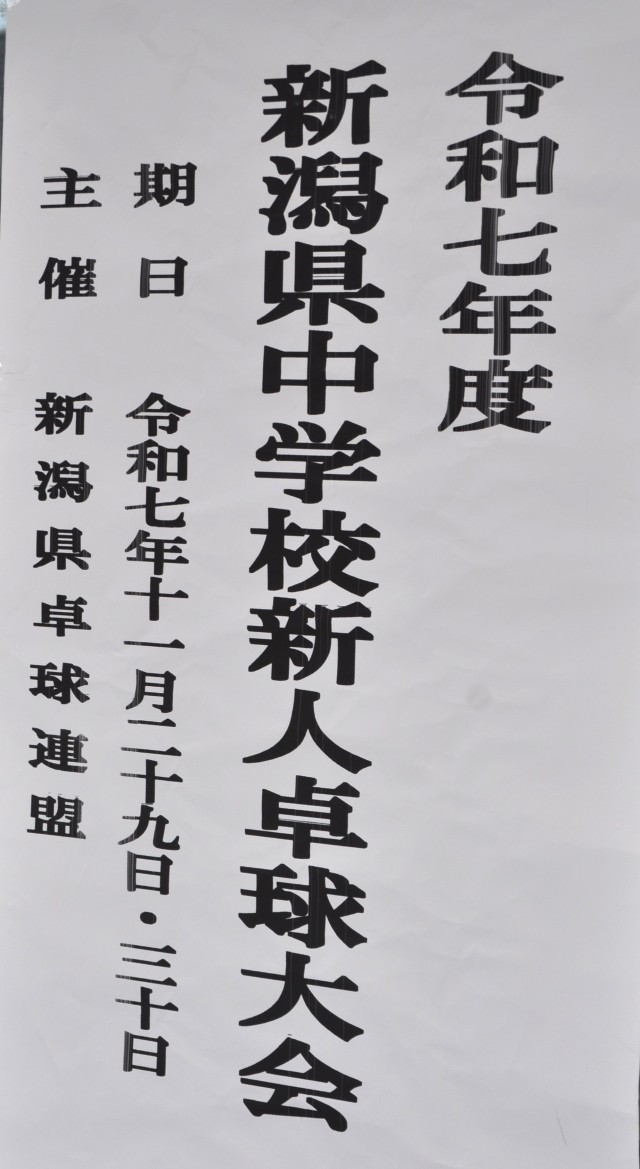 令和七年度
新潟県中学校新人卓球大会
期日　令和七年十一月二十九日・三十日
主催　新潟県卓球連盟